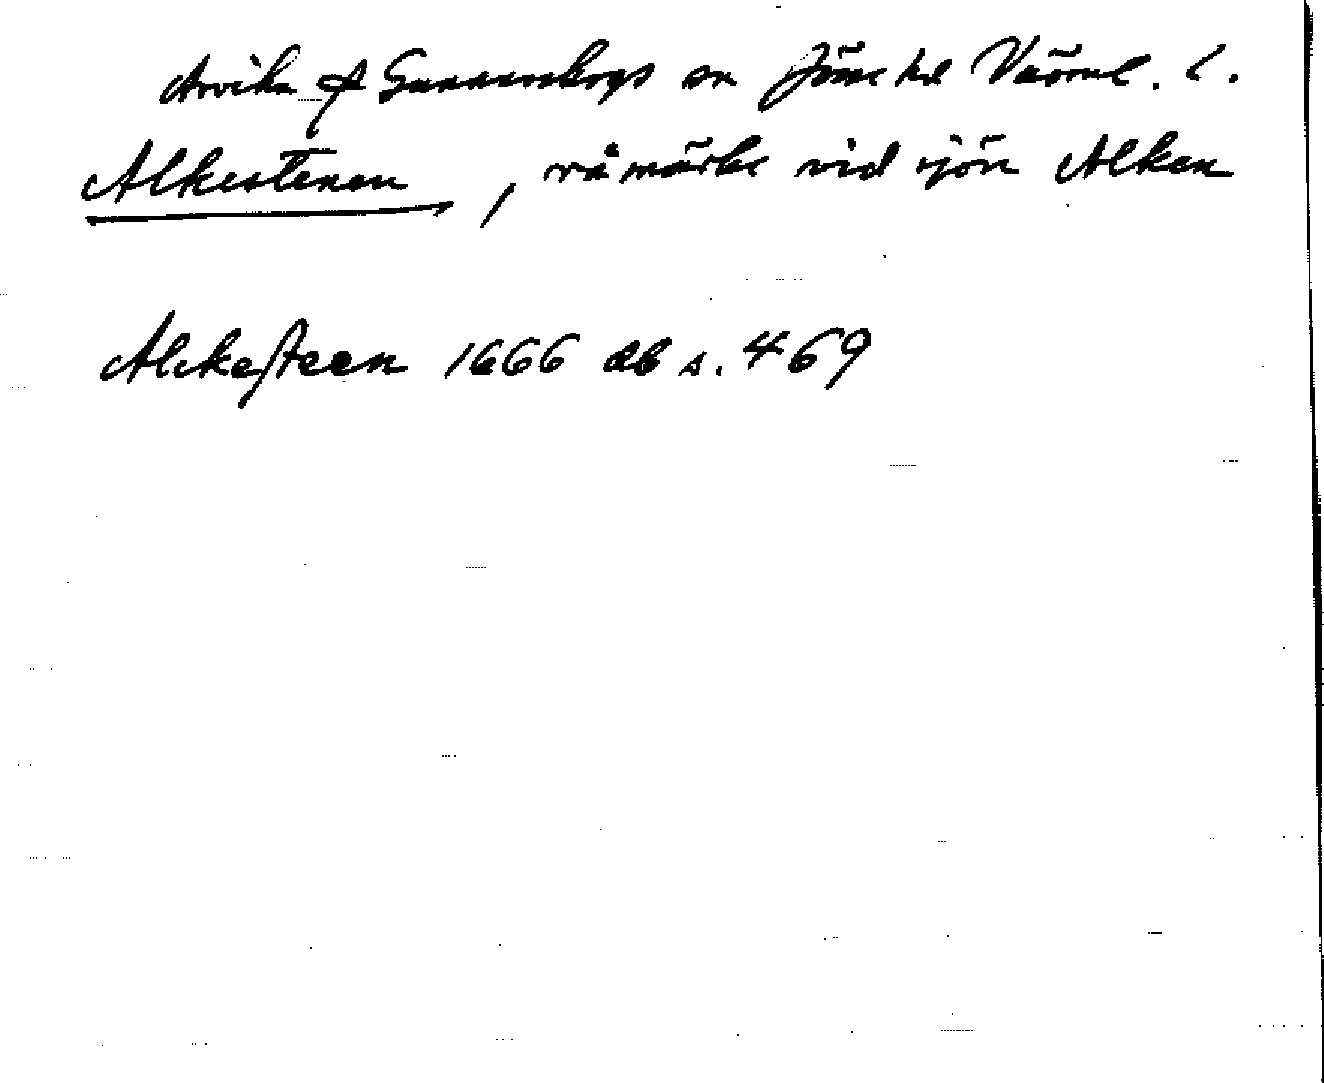 Arvika o Gunnarskogs sn Jösse hd Värml. l.
Alkestenen, råmärke vid sjön Alken
Alckesteen 1666 db s. 469